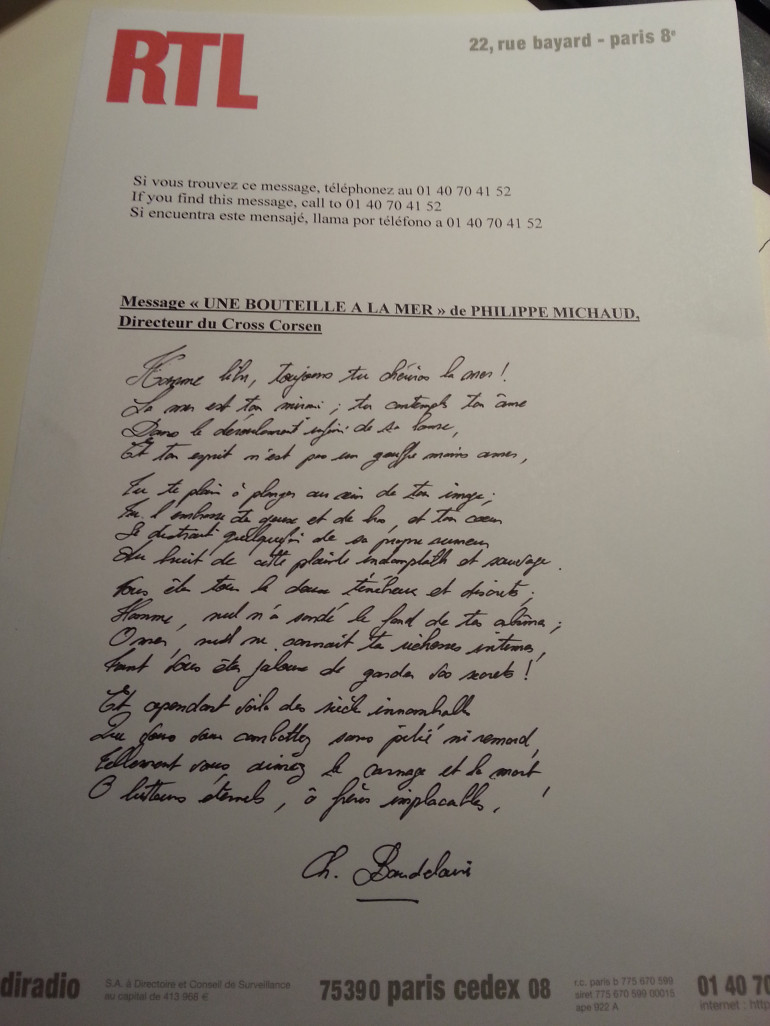 RTL
22, rue bayard - paris 8e
Si vous trouvez ce message, téléphonez au 01 40 70 41 52
If you find this message, call to 01 40 70 41 52
Si encuentra este mensajé, llama por teléfono a 01 40 70 41 52
Message « UNE BOUTEILLE A LA MER » de PHILIPPE MICHAUD,
Directeur du Cross Corsen
Homme libre, toujours tu chériras la mer !
La mer est ton miroir ; tu contemples ton âme
Dans le déroulement infini de sa lame,
Et ton esprit n'est pas un gouffre moins amer,
Tu te plais à plonger au sein de ton image ;
Tu l'embrasses de yeux et de bras, et ton cœur
Se distrait quelquefois de sa propre rumeur
Au bruit de cette plainte indomptable et sauvage.
Vous êtes tous les deux ténébreux et discrets ;
Homme, nul n'a sondé le fond de tes abîmes ;
O mer, nul ne connait tes richesses intimes,
Tant vous êtes jaloux de garder vos secrets !
Et cependant voilà des siècles innombrables
Que vous vous combattez sans pitié ni remord,
Tellement vous aimez le carnage et la mort
O lutteurs éternels, ô frères implacables, !
Ch. Baudelaire
diradio
S.A. à Directoire et Conseil de Surveillance
au capital de 413 968 €
75390 paris cedex 08
r.c. paris b 775 670 599
siret 775 670 599 00015
ape 922 A
01 40 70
internet : http